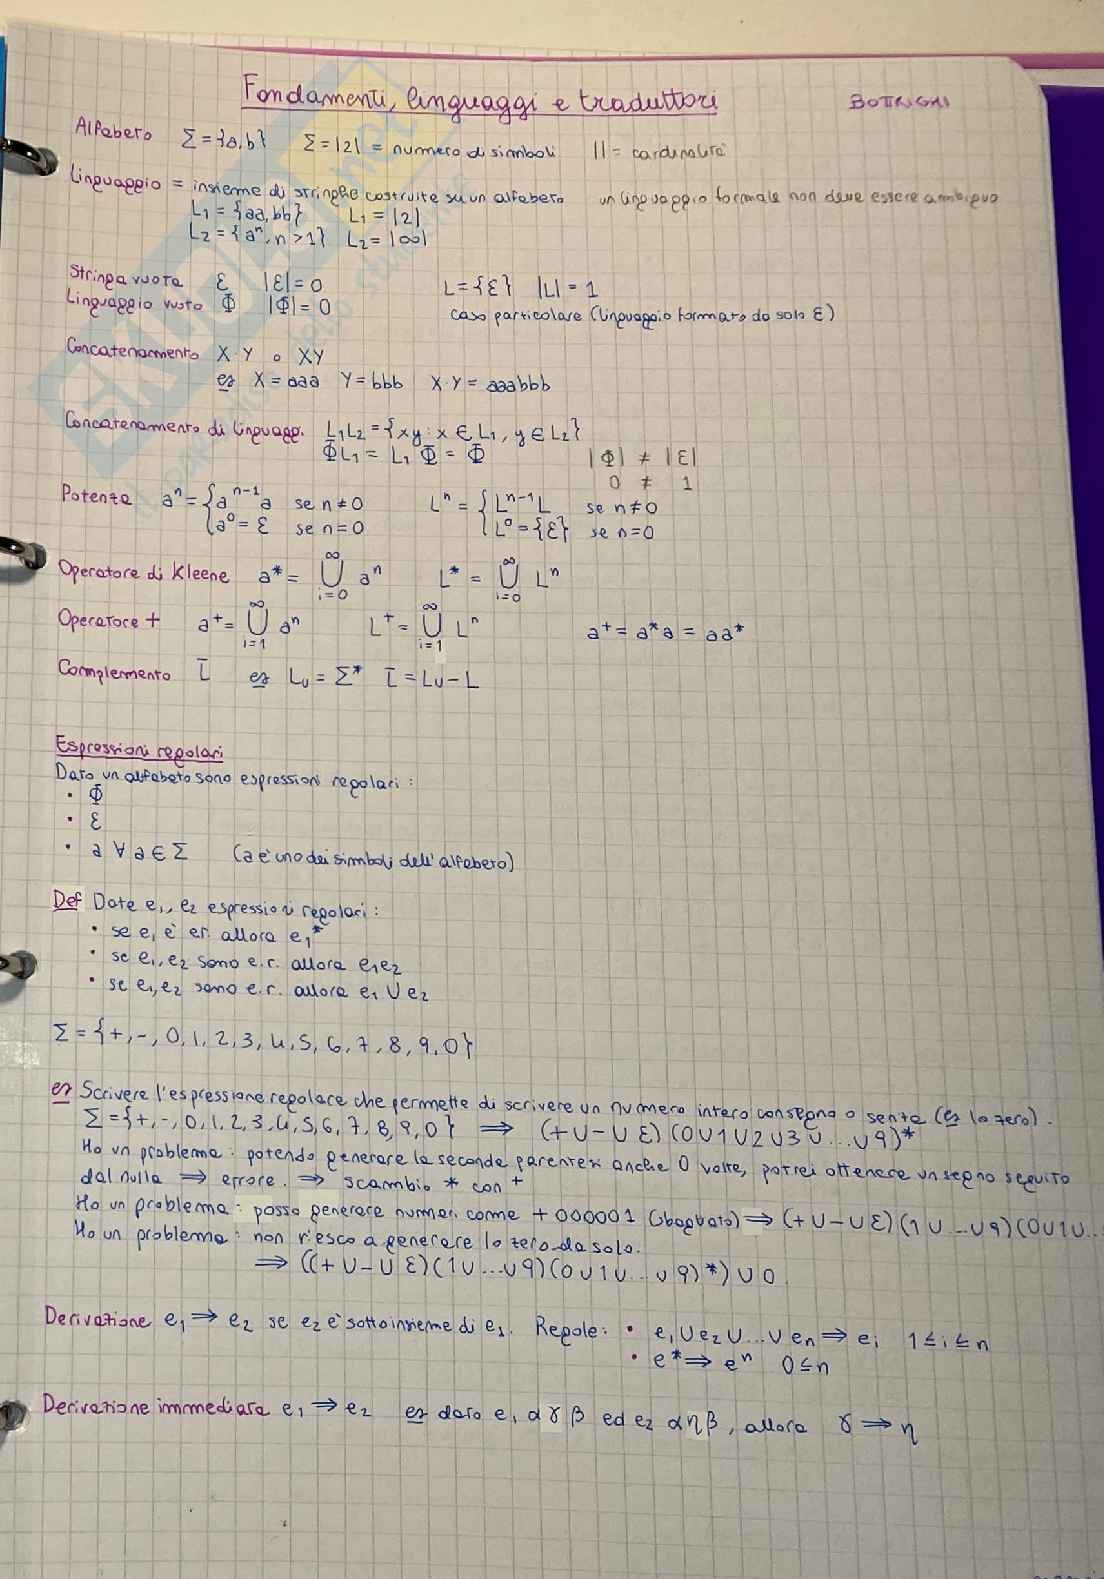 Fondamenti, linguaggi e traduttori BOTTRIGHI
Alfabeto Σ={a,b} Σ=|2| = numero di simboli || = cardinalità
Linguaggio = insieme di stringhe costruite su un alfabeto un linguaggio formale non deve essere ambiguo
L₁ = {aa,bb} L₁ = |2|
L₂ = {aⁿ, n>1} L₂ = |∞|
Stringa vuota ε |ε|=0 L={ε} |L| = 1
Linguaggio vuoto Φ |Φ|=0 caso particolare (linguaggio formato da solo ε)
Concatenamento X·Y o XY
es X = aaa Y = bbb X·Y = aaabbb
Concatenamento di linguagg. L₁L₂ = {xy : x ∈ L₁, y ∈ L₂}
ΦL₁ = L₁Φ = Φ |Φ| ≠ |ε|
0 ≠ 1
Potenza aⁿ = { aⁿ⁻¹a se n≠0 Lⁿ = { Lⁿ⁻¹L se n≠0
a⁰ = ε se n=0 L⁰={ε} se n=0
Operatore di Kleene a* = ⋃_{i=0}^{∞} aⁿ L* = ⋃_{i=0}^{∞} Lⁿ
Operatore + a⁺ = ⋃_{i=1}^{∞} aⁿ L⁺ = ⋃_{i=1}^{∞} Lⁿ a⁺ = a*a = aa*
Complemento L̅ es Lᵤ = Σ* L̅ = Lᵤ - L
Espressioni regolari
Dato un alfabeto sono espressioni regolari :
• Φ
• ε
• a ∀ a ∈ Σ (a è uno dei simboli dell'alfabeto)
Def Date e₁, e₂ espressioni regolari :
• se e₁ è er. allora e₁*
• se e₁, e₂ sono e.r. allora e₁e₂
• se e₁,e₂ sono e.r. allora e₁ ∪ e₂
Σ = {+,-,0,1,2,3,4,5,6,7,8,9,0}
es Scrivere l'espressione regolare che permette di scrivere un numero intero con segno o senza (es lo zero).
Σ = {+,-,0,1,2,3,4,5,6,7,8,9,0} ⇒ (+∪-∪ε)(0∪1∪2∪3∪...∪9)*
Ho un problema : potendo generare la seconda parentesi anche 0 volte, potrei ottenere un segno seguito
dal nulla ⇒ errore. ⇒ scambio * con +
Ho un problema : posso generare numeri come +000001 (sbagliato) ⇒ (+∪-∪ε)(1∪...∪9)(0∪1∪...
Ho un problema : non riesco a generare lo zero da solo.
⇒ ((+∪-∪ε)(1∪...∪9)(0∪1∪...∪9)*)∪0
Derivazione e₁ ⇒ e₂ se e₂ è sottoinsieme di e₁. Regole: • e₁∪e₂∪...∪eₙ ⇒ eᵢ 1≤i≤n
• e* ⇒ eⁿ 0≤n
Derivazione immediata e₁ ⇒ e₂ es dato e₁ αγβ ed e₂ αηβ, allora γ ⇒ η